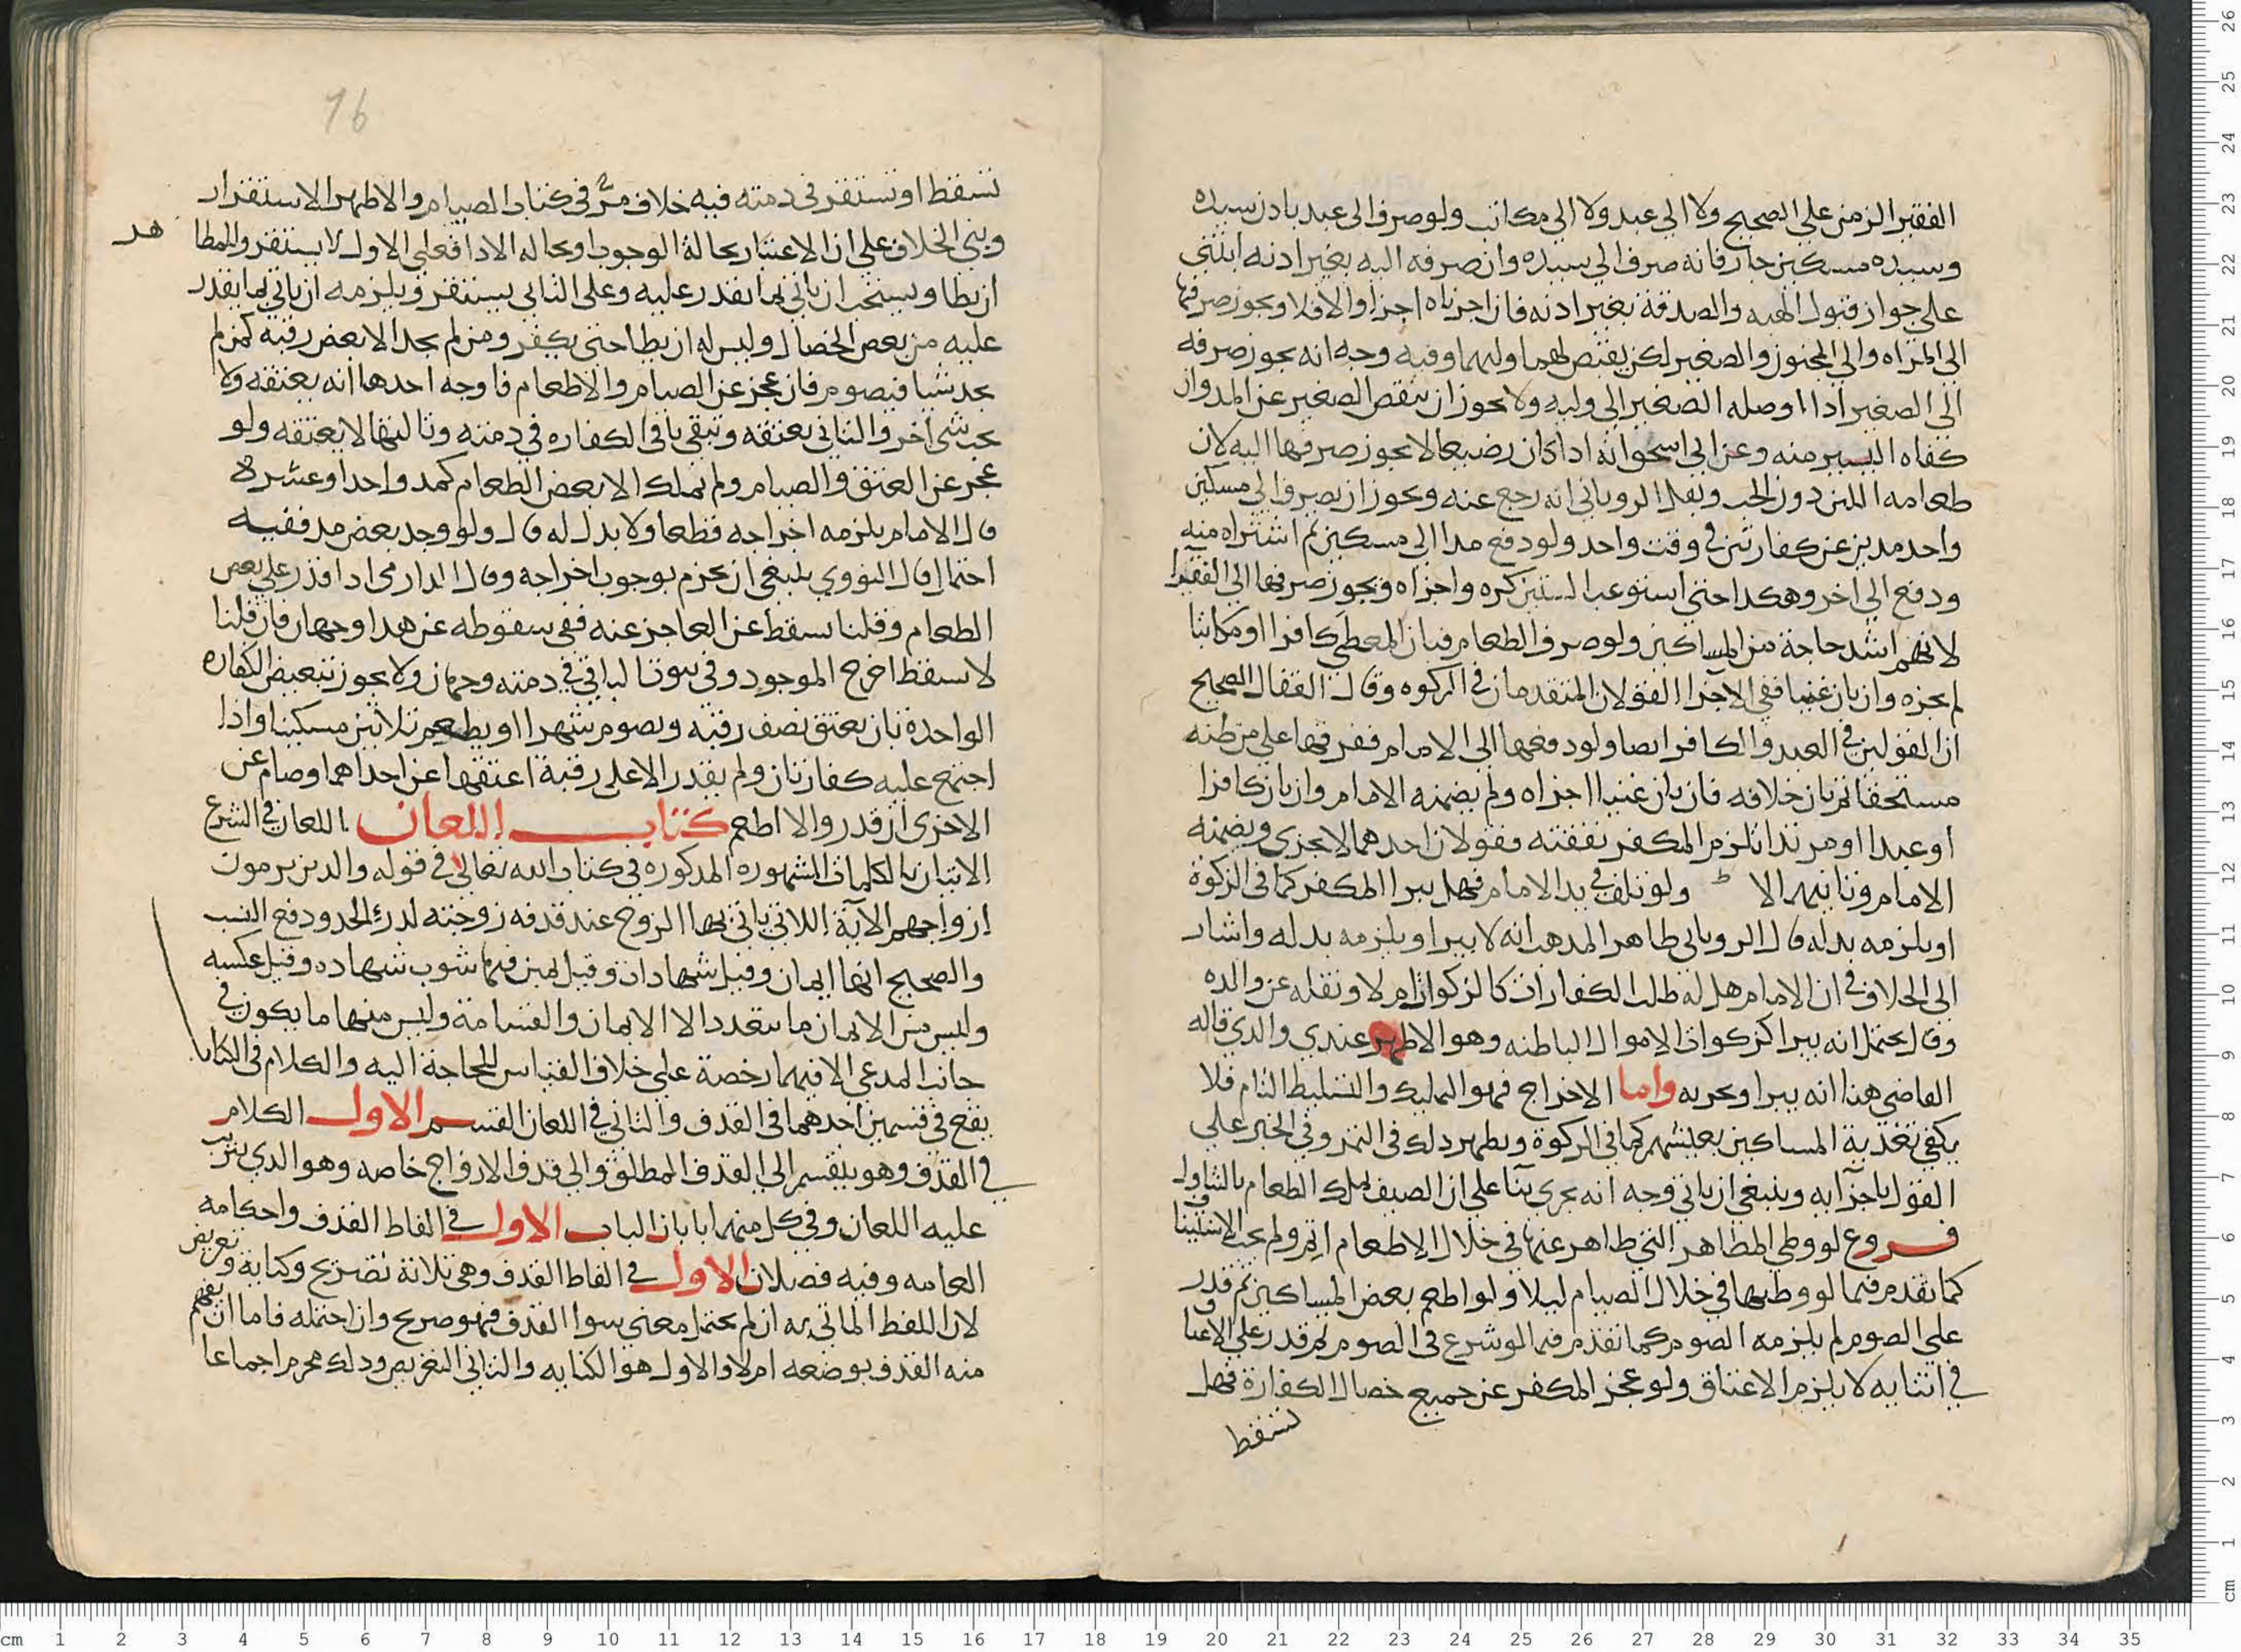 الفقير الزمن على الصحيح ولا الى عبد ولا الى مكاتب ولو صرف الى عبد باذن سيده
وسيده مسكين جاز فانه صرف الى سيده وان صرفه اليه بغير اذنه ابتنى
على جواز قبول الهبه والصدقة بغير اذنه فان اجزناه اجزا والا فلا ويجوز صرفها
الى المراه والى المجنون والصغير لكن يقبض لهما وليهما وفيه وجه انه يجوز صرفه
الى الصغير اذا اوصله الصغير الى وليه ولا يجوز ان ينقص الصغير عن المد وان
كفاه اليسير منه وعن ابى اسحق انه اذا كان رضيعا لا يجوز صرفها اليه لان
طعامه اللبن دون الحب ونقل الرويانى انه رجع عنه ويجوز ان يصرف الى مسكين
واحد مدين عن كفارتين فى وقت واحد ولو دفع مدا الى مسكين ثم اشتراه منه
ودفع الى اخر وهكذا حتى استوعب الستين كره واجزاه ويجوز صرفها الى الفقرا
لانهم اشد حاجة من المساكين ولو صرف الطعام فبان المعطى كافرا او مكاتبا
لم يجزه وان بان غنيا ففى الاجزا القولان المتقدمان فى الزكوه وقال القفال الصحيح
ان القولين فى العبد والكافر ايضا ولو دفعها الى الامام ففرقها على من ظنه
مستحقا ثم بان خلافه فان بان غنيا اجزاه ولم يضمنه الامام وان بان كافرا
او عبدا او مرتدا لزم المكفر نفقته فقولان احدهما لا يجزى ويضمنه
الامام وثانيهما لا ط ولو تلف فى يد الامام فهل يبرا المكفر كما فى الزكوة
او يلزمه بدله قال الرويانى ظاهر المذهب انه لا يبرا ويلزمه بدله واشار
الى الخلاف فى ان الامام هل له طلب الكفارات كالزكوات ام لا ونقله عن والده
وقال يحتمل انه يبرا كزكوات الاموال الباطنه وهو الاظهر عندى والذى قاله
القاضى هنا انه يبرا وبحربه واما الاخراج فهو التمليك والتسليط التام فلا
يكفى تغدية المساكين بعشهم كما فى الزكوة ويظهر ذلك فى التمر وفى الخبز على
القول باجزايه وينبغى ان ياتى وجه انه يجرى بنا على ان الضيف يملك الطعام بالتناول
فروع لو وطى المظاهر التى ظاهر عنها فى خلال الاطعام اثم ولم يجب الاستينا
ف كما تقدم فيما لو وطيها فى خلال الصيام ليلا ولو اطعم بعض المساكين ثم قدر
على الصوم لم يلزمه الصوم كما تقدم فيما لو شرع فى الصوم ثم قدر على الاعتا
ق فى اثنايه لا يلزم الاعتاق ولو عجز المكفر عن جميع خصال الكفارة فهل
تسقط
76
تسقط او تستقر فى ذمته فيه خلاف مر فى كتاب الصيام والاظهر الاستقرار
وبنى الخلاف على ان الاعتبار بحالة الوجوب او بحاله الادا فعلى الاول لا يستقر وللمظا
هر
ان يطا ويستحب ان ياتى بما يقدر عليه وعلى الثانى يستقر ويلزمه ان ياتى بما يقدر
عليه من بعض الخصال وليس له ان يطا حتى يكفر ومن لم يجد الا بعض رقبة كمن لم
يجد شيا فيصوم فان عجز عن الصيام والاطعام فاوجه احدها انه يعتقه ولا
يجب شى اخر والثانى يعتقه وتبقى باقى الكفاره فى ذمته وثالثها لا يعتقه ولو
عجز عن العتق والصيام ولم يملك الا بعض الطعام كمد واحد او عشره
قال الامام يلزمه اخراجه قطعا ولا بدل له قال ولو وجد بعض مد ففيه
احتمال قال النووى ينبغى ان يجزم بوجوب اخراجه وقال الدارمى اذا قدر على بعض
الطعام وقلنا يسقط عن العاجز عنه ففى سقوطه عن هذا وجهان فان قلنا
لا يسقط اخرج الموجود وفى ثبوت الباقى فى ذمته وجهان ولا يجوز تبعيض الكفاره
الواحدة بان يعتق نصف رقبه ويصوم شهرا او يطعم ثلاثين مسكينا واذا
اجتمع عليه كفارتان ولم يقدر الا على رقبة اعتقها عن احداهما وصام عن
الاخرى ان قدر والا اطعم كتاب اللعان اللعان فى الشرع
الاتيان بالكلمات المشهوره المذكوره فى كتاب الله تعالى فى قوله والذين يرمون
ازواجهم الآية اللاتى ياتى بها الزوج عند قذفه زوجته لدرء الحد ودفع النسب
والصحيح انها ايمان وقيل شهادات وقيل يمين فيها شوب شهاده وقيل عكسه
وليس من الايمان ما يتعدد الا الايمان والقسامة وليس منها ما يكون فى
جانب المدعى الا فيهما رخصة على خلاف القياس للحاجة اليه والكلام فى الكتاب
يقع فى قسمين احدهما فى القذف والثانى فى اللعان القسم الاول الكلام
فى القذف وهو ينقسم الى القذف المطلق والى قذف الازواج خاصه وهو الذى يترتب
عليه اللعان وفى كل منهما بابان الباب الاول فى الفاظ القذف واحكامه
العامه وفيه فصلان الاول فى الفاظ القذف وهى ثلاثة تصريح وكناية وتعريض
لان اللفظ الماتى به ان لم يحتمل معنى سوا القذف فهو صريح وان احتمله فاما ان يفهم
منه القذف بوضعه ام لا والاول هو الكنايه والثانى التعريض وذلك محرم اجماعا